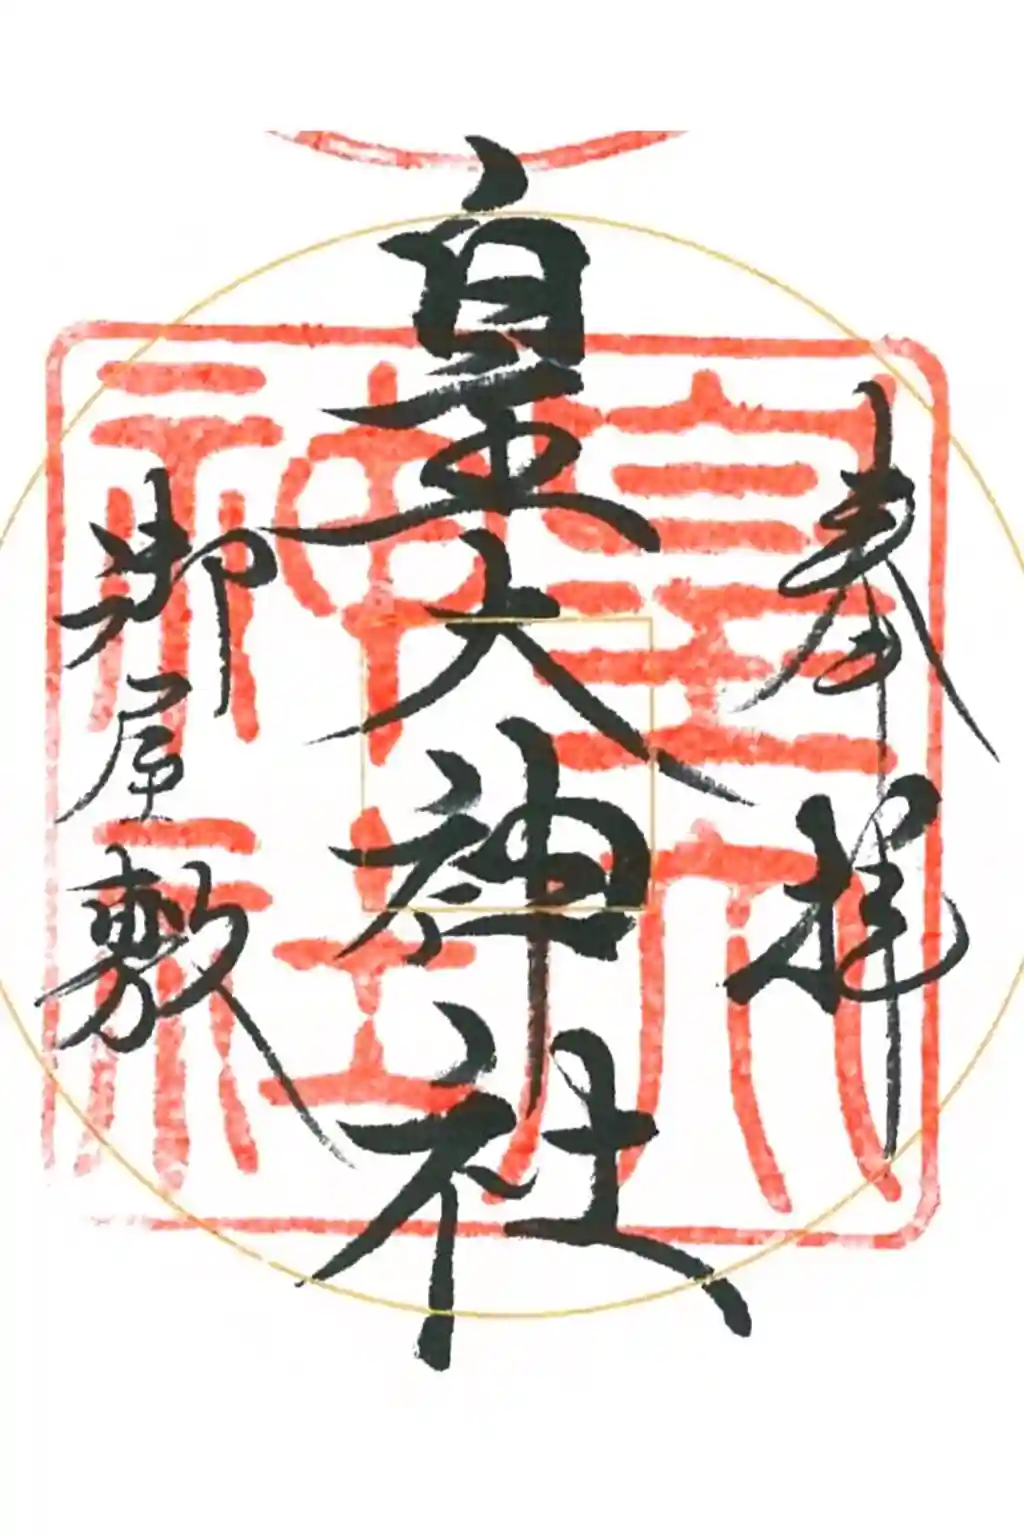 奉拝
皇大神社
御屋敷
皇大
神社